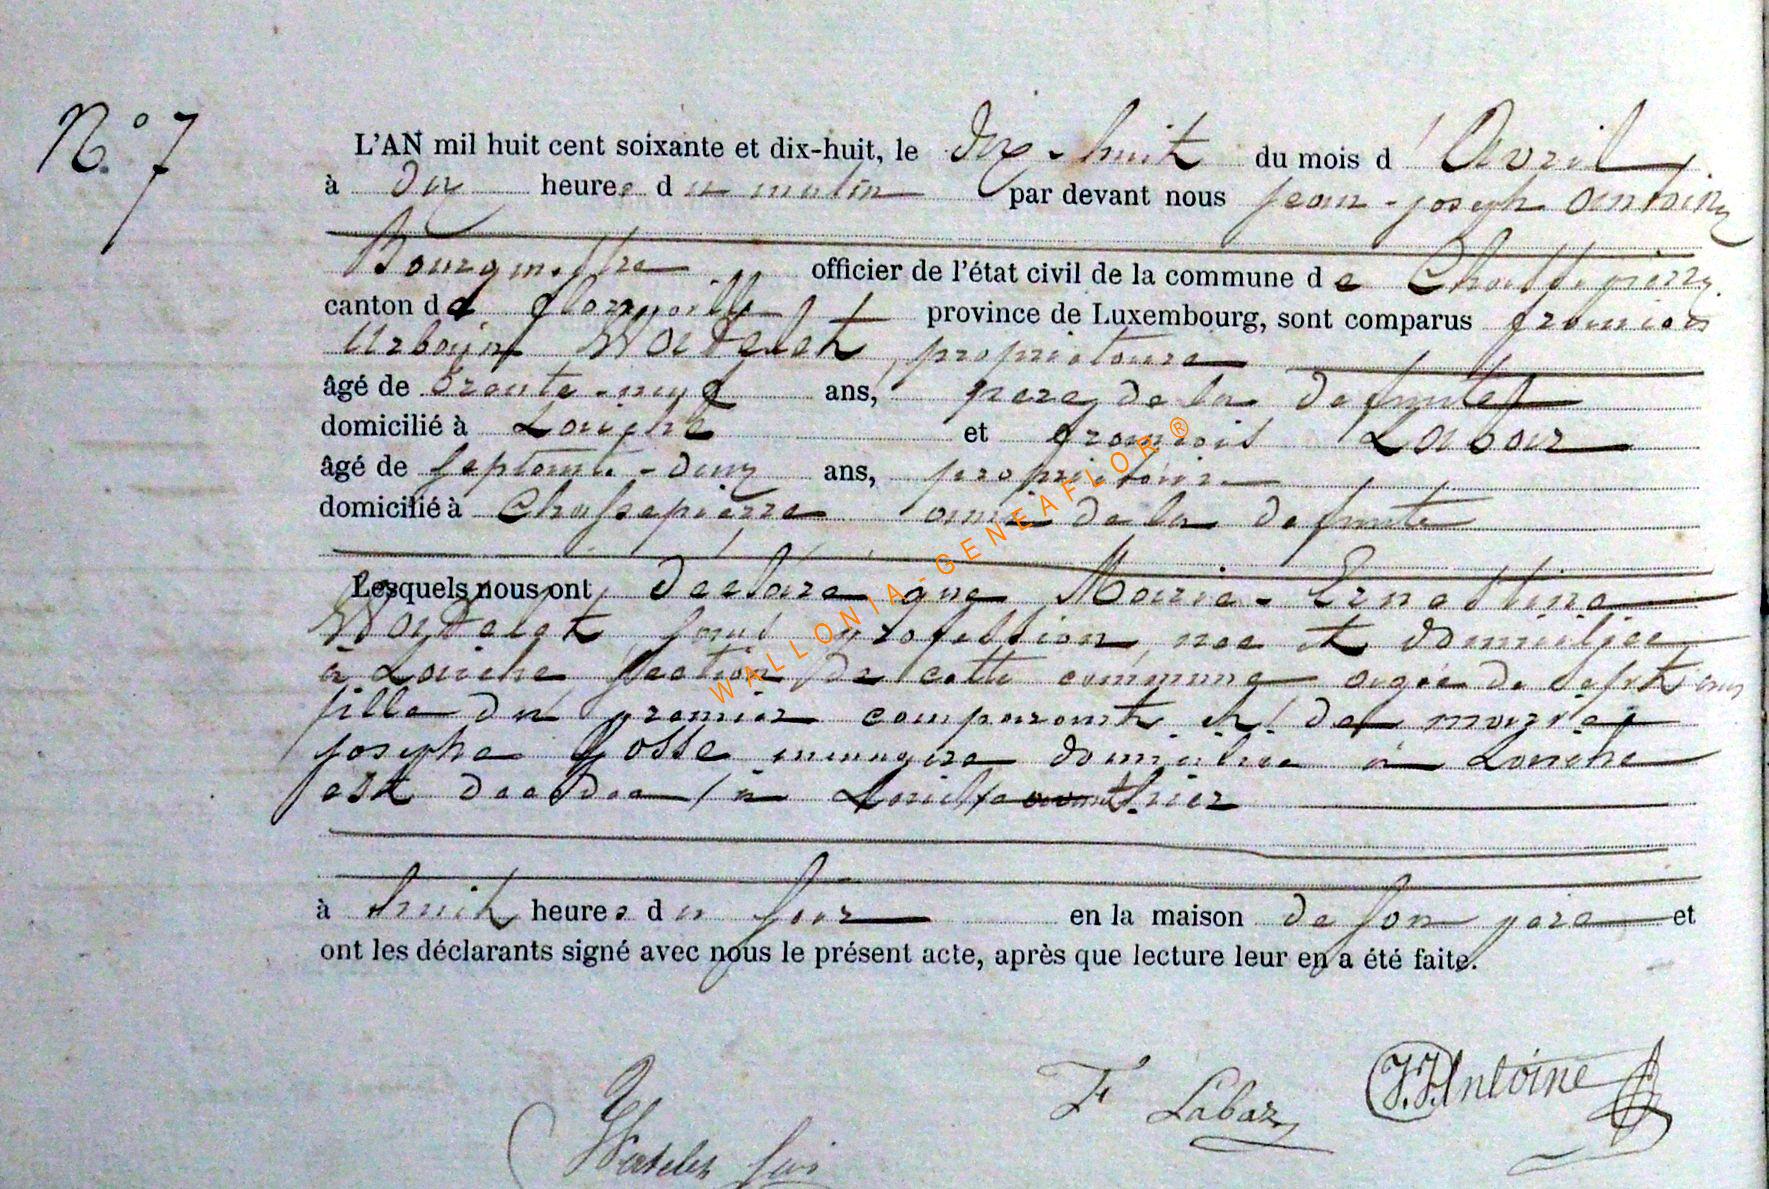 N.° 7
L'AN mil huit cent soixante et dix-huit, le dix-huit du mois d'Avril
à dix heures du matin par devant nous Jean-Joseph Antoine
Bourgmestre officier de l'état civil de la commune de Chassepierre
canton de Florenville province de Luxembourg, sont comparus François
Urbain Watelet, propriétaire
âgé de trente-neuf ans, père de la défunte
domicilié à Laiche et François Labar
âgé de septante-deux ans, propriétaire
domicilié à Chassepierre ami de la défunte
Lesquels nous ont déclaré que Marie-Ernestine
Watelet sans profession née et domiciliée
à Laiche section de cette commune agée de sept ans
fille du premier comparant et de Marie
Josephe Gosse menagère domiciliée à Laiche
est décédée à Laiche avant hier
à huit heures du soir en la maison de son père et
ont les déclarants signé avec nous le présent acte, après que lecture leur en a été faite.
F Labar J.J. Antoine
Watelet
WALLONIA-GENEAFLOR®